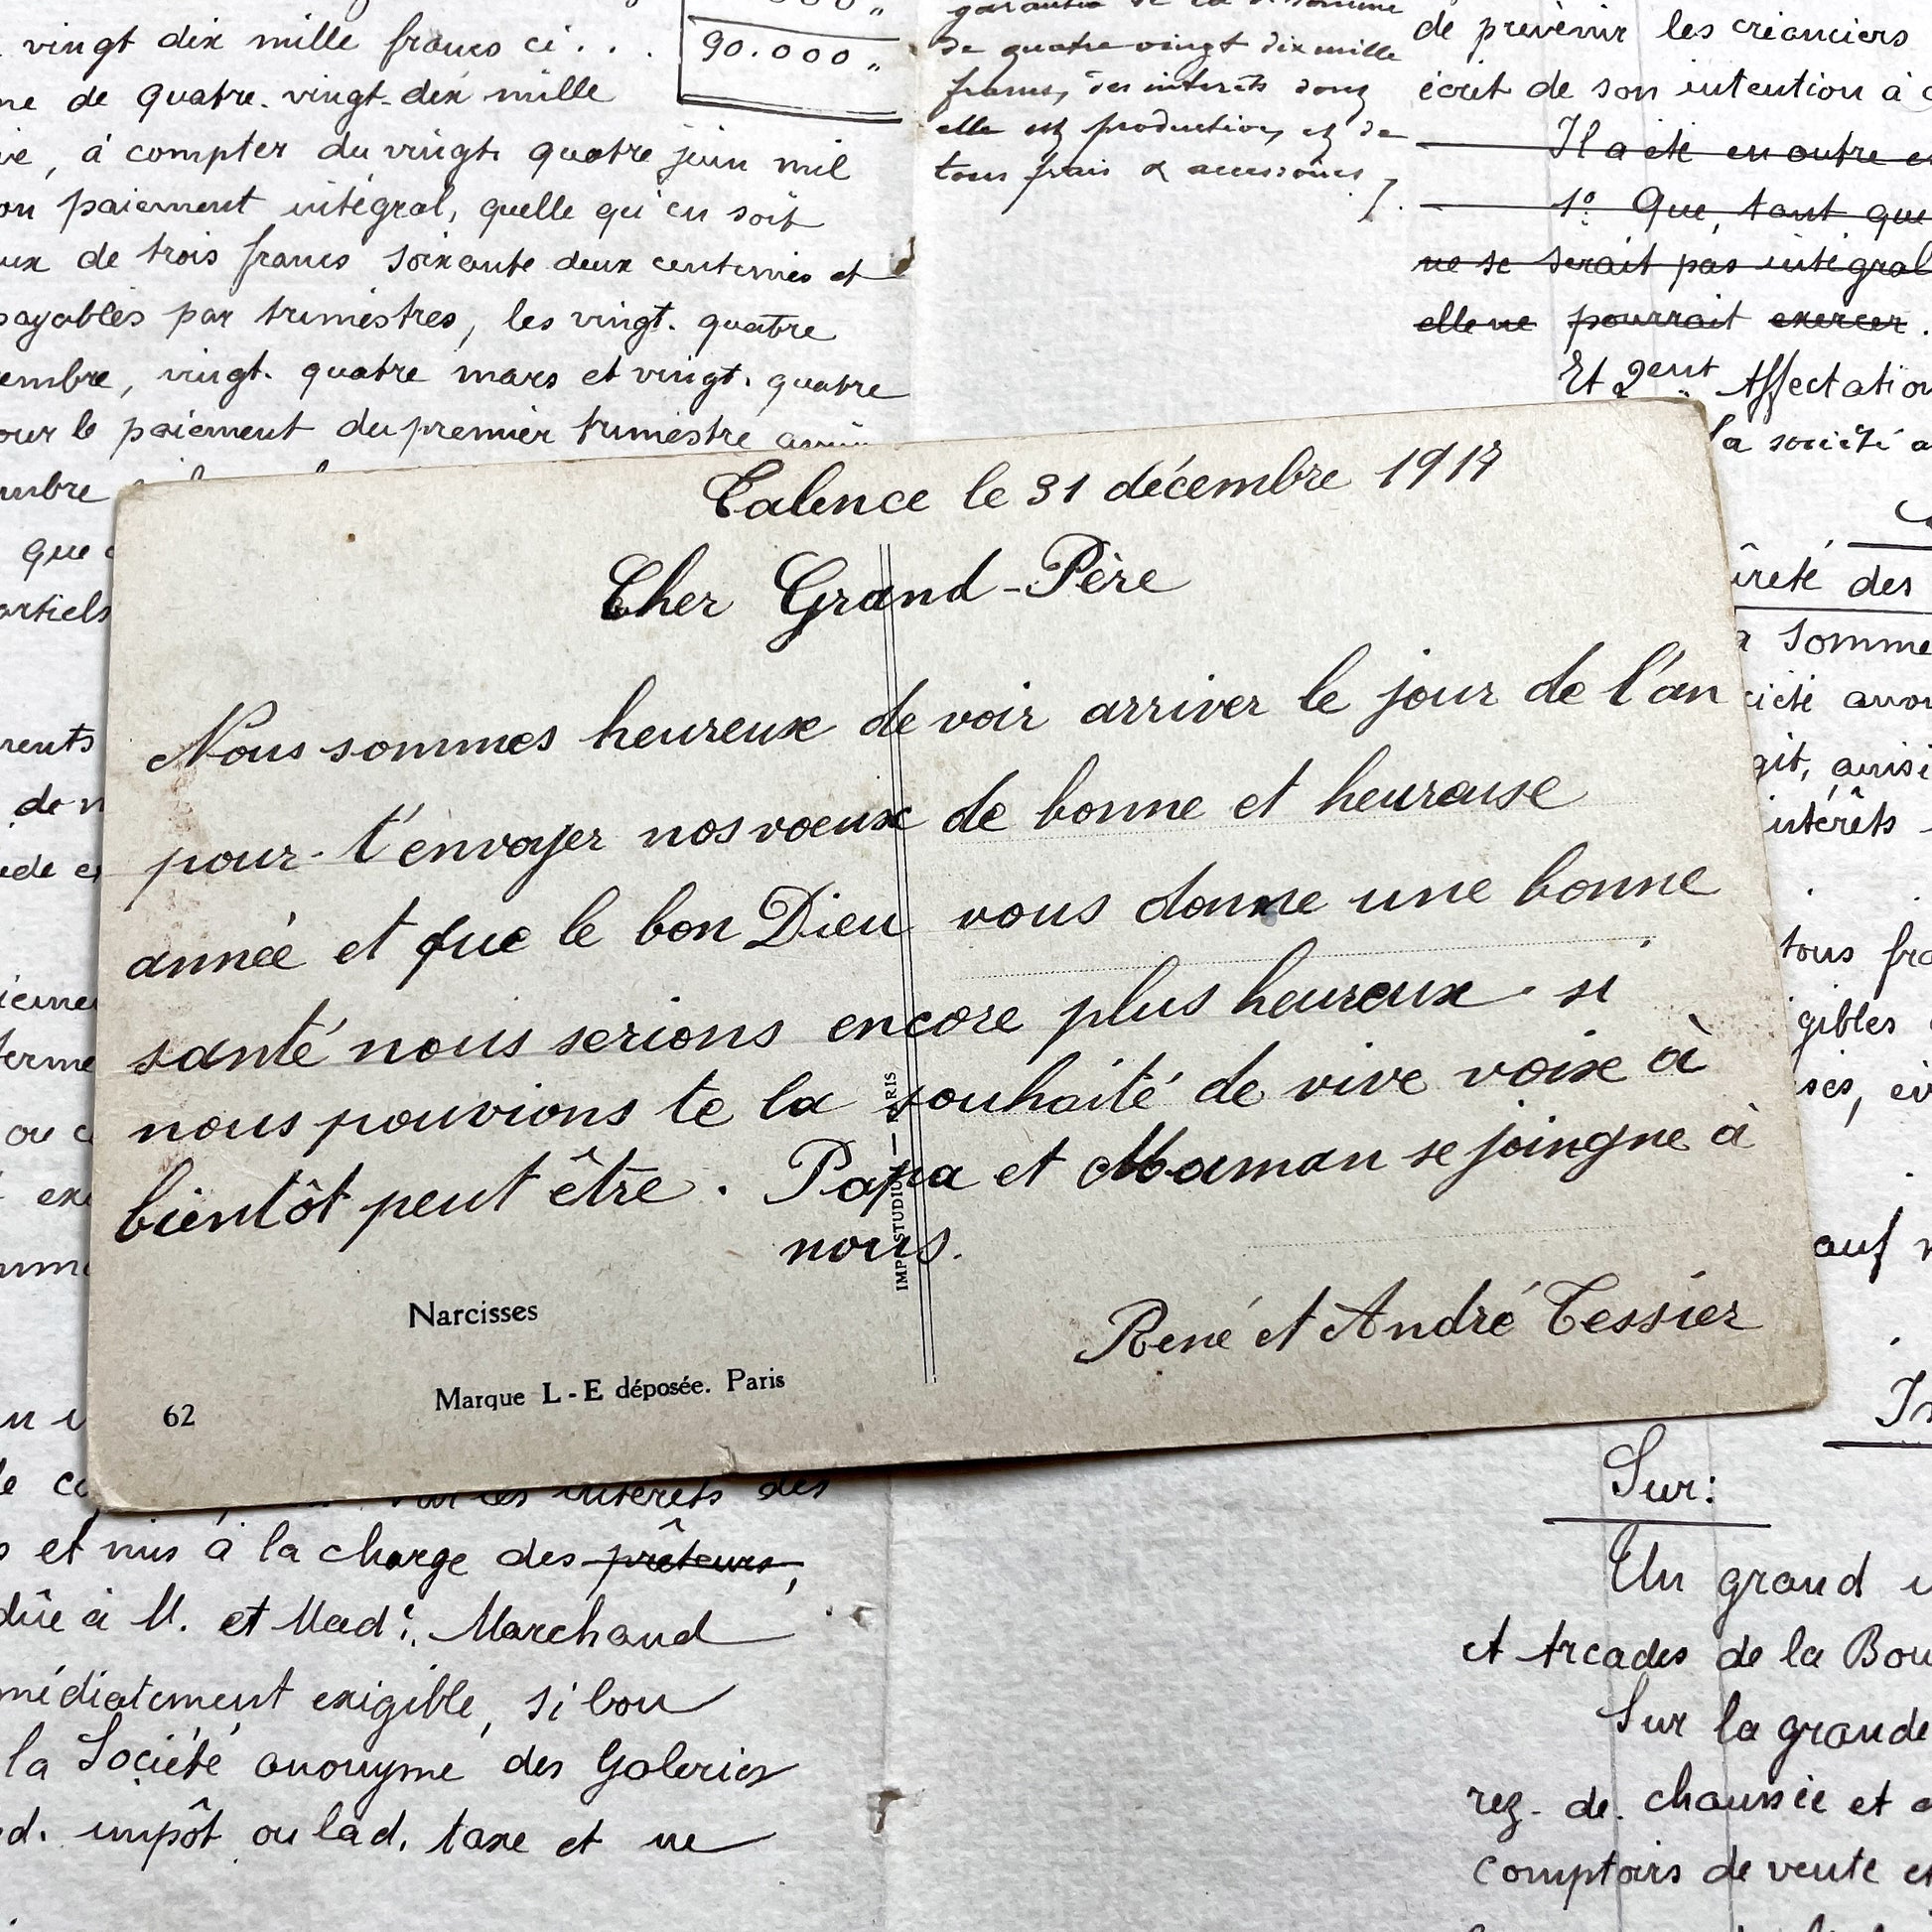 vingt dix mille francs ci . . .
90.000 "
de quatre-vingt-dix mille
, à compter du vingt quatre juin mil
paiement intégral, quelle qu'en soit
de trois francs soixante deux centimes et
payables par trimestres, les vingt. quatre
embre, vingt. quatre mars et vingt. quatre
our le paiement du premier trimestre
mbre
que
artiels
rents
garantie de la
de quatre vingt dix mille
francs, des intérêts dont
elle est productive, et de
tous frais & accessoires ,
de prévenir les créanciers
écrit de son intention à
Il a été en outre
1º. Que, tant que
ne se serait pas intégral
elle ne pourrait exercer .
Et 2ent Affectation
la société a
ûreté des
a somme
git, ainsi
intérêts
tous fra
gibles
auf
Talence le 31 décembre 1917
Cher Grand-Père
Nous sommes heureux de voir arriver le jour de l'an
pour t'envoyer nos vœux de bonne et heureuse
année et que le bon Dieu vous donne une bonne
santé nous serions encore plus heureux si
nous pouvions te la souhaité de vive voix à
bientôt peut être . Papa et Maman se joingne à
nous.
René et André Tessier
Narcisses
Marque L-E déposée. Paris
62
IMP STUDIO — PARIS
les intérêts des
et mis à la charge des prêteurs,
dûe à M. et Made. Marchand
médiatement exigible, si bon
la Société anonyme des Galeries
d. impôt ou lad. taxe et ne
Sur:
Un grand
et Arcades de la Bou
Sur la grande
rez-de-chaussée et
comptoirs de vente et